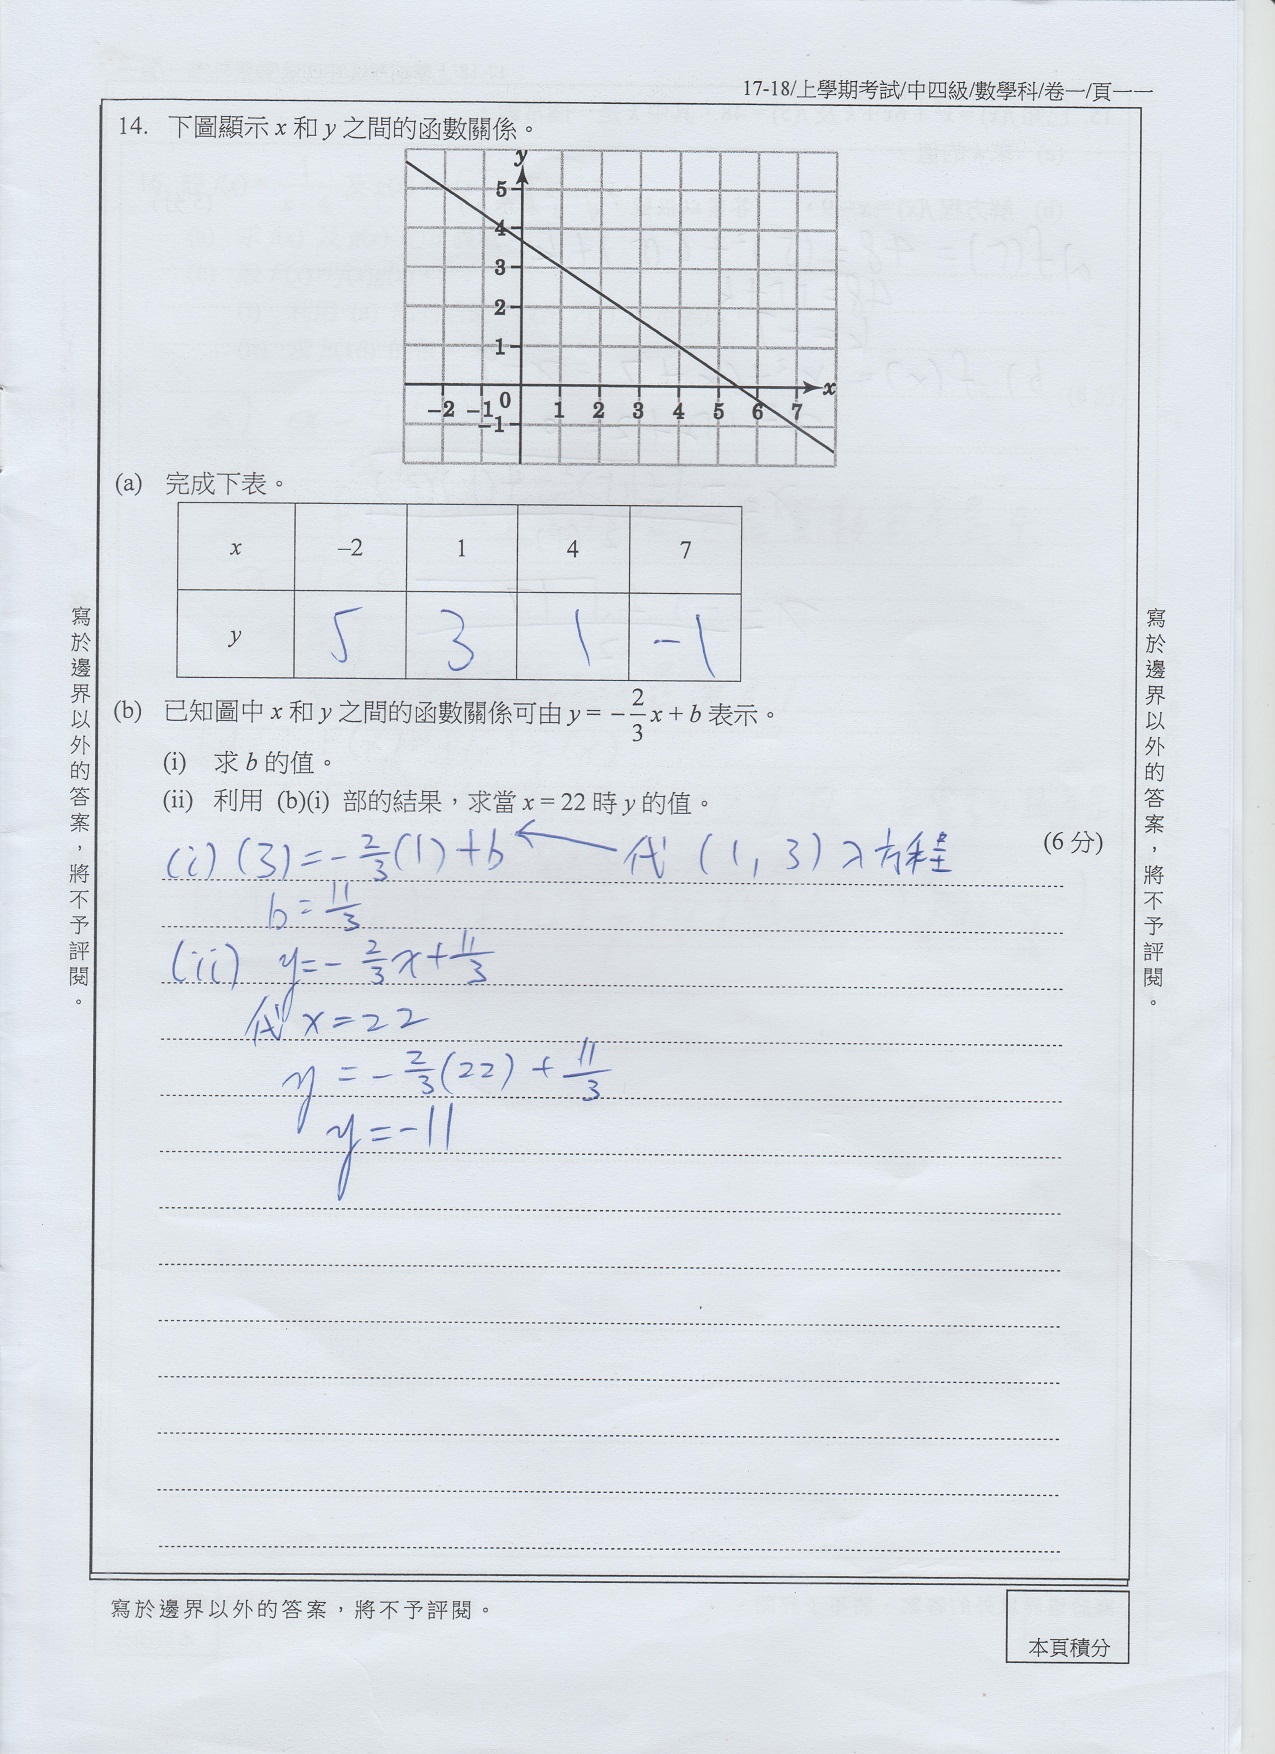 17-18/上學期考試/中四級/數學科/卷一/頁一一
14. 下圖顯示 x 和 y 之間的函數關係。
y
5
4
3
2
1
0
x
-2 -1 1 2 3 4 5 6 7
-1
(a) 完成下表。
x -2 1 4 7
y 5 3 1 -1
(b) 已知圖中 x 和 y 之間的函數關係可由 y = -2/3 x + b 表示。
(i) 求 b 的值。
(ii) 利用 (b)(i) 部的結果,求當 x = 22 時 y 的值。
(6 分)
(i) (3) = -2/3 (1) + b ← 代 (1, 3) 入方程
b = 11/3
(ii) y = -2/3 x + 11/3
代 x = 22
y = -2/3 (22) + 11/3
y = -11
寫於邊界以外的答案,將不予評閱。
寫於邊界以外的答案,將不予評閱。
寫於邊界以外的答案,將不予評閱。
本頁積分